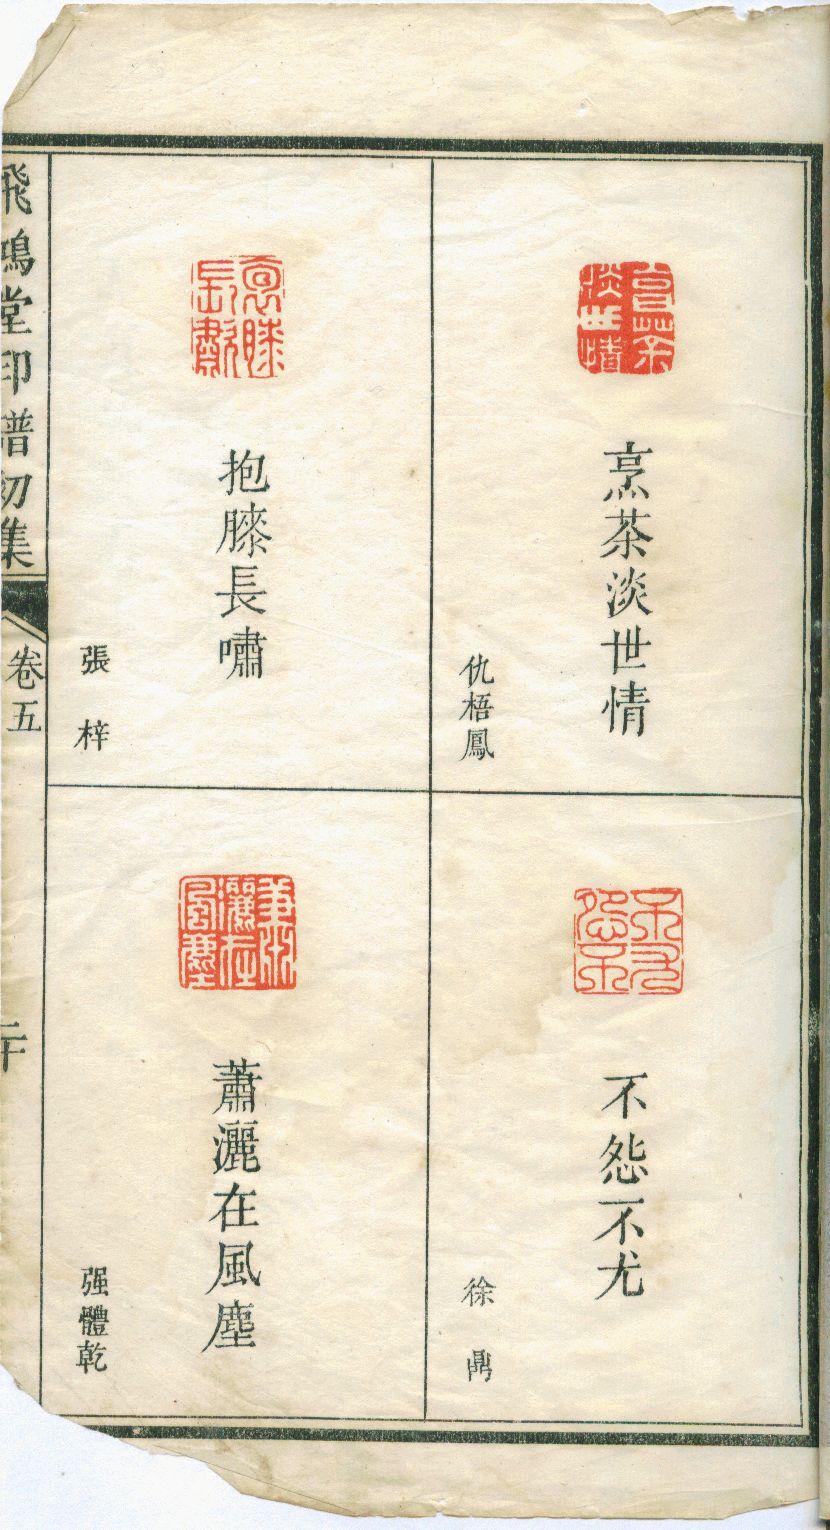 烹茶淡世情
仇梧鳳
不怨不尤
徐鼎
抱膝長嘯
張梓
蕭灑在風塵
强體乾
飛鴻堂印譜初集
卷五
二十